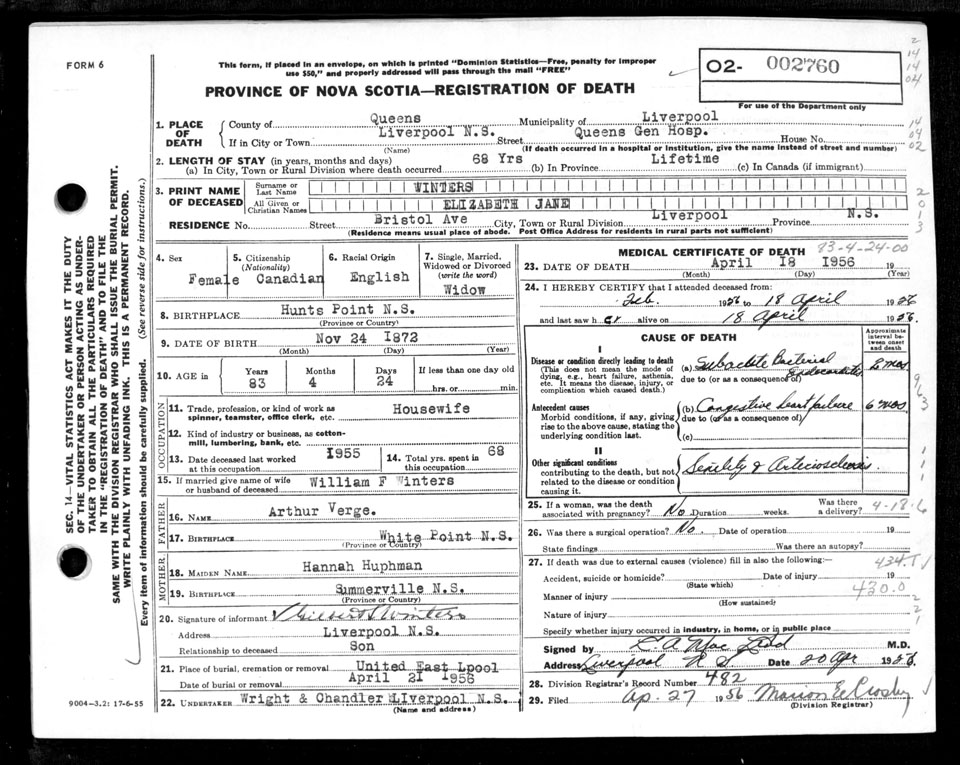 FORM 6
This form, if placed in an envelope, on which is printed "Dominion Statistics—Free, penalty for improper
use $50," and properly addressed will pass through the mail "FREE"
PROVINCE OF NOVA SCOTIA—REGISTRATION OF DEATH
O2- 002760
For use of the Department only
2
14
14
04
14
04
02
2
0
1
3
SEC. 14—VITAL STATISTICS ACT MAKES IT THE DUTY
OF THE UNDERTAKER OR PERSON ACTING AS UNDER-
TAKER TO OBTAIN ALL THE PARTICULARS REQUIRED
IN THE "REGISTRATION OF DEATH" AND TO FILE THE
SAME WITH THE DIVISION REGISTRAR WHO SHALL ISSUE THE BURIAL PERMIT.
WRITE PLAINLY WITH UNFADING INK. THIS IS A PERMANENT RECORD.
Every item of information should be carefully supplied. (See reverse side for instructions.)
1. PLACE OF DEATH
County of Queens Municipality of Liverpool
If in City or Town Liverpool N.S. Street Queens Gen Hosp. House No.
(Name) (If death occurred in a hospital or institution, give the name instead of street and number)
2. LENGTH OF STAY (in years, months and days)
(a) In City, Town or Rural Division where death occurred 68 Yrs (b) In Province Lifetime (c) In Canada (if immigrant)
3. PRINT NAME OF DECEASED
Surname or Last Name WINTERS
All Given or Christian Names ELIZABETH JANE
RESIDENCE No. Street Bristol Ave City, Town or Rural Division Liverpool Province N.S.
(Residence means usual place of abode. Post Office Address for residents in rural parts not sufficient)
4. Sex
Female
5. Citizenship
(Nationality)
Canadian
6. Racial Origin
English
7. Single, Married,
Widowed or Divorced
(write the word)
Widow
8. BIRTHPLACE Hunts Point N.S.
(Province or Country)
9. DATE OF BIRTH Nov 24 1872
(Month) (Day) (Year)
10. AGE in
Years Months Days If less than one day old
83 4 24 hrs. or min.
OCCUPATION
11. Trade, profession, or kind of work as
spinner, teamster, office clerk, etc. Housewife
12. Kind of industry or business, as cotton-
mill, lumbering, bank, etc.
13. Date deceased last worked
at this occupation 1955
14. Total yrs. spent in
this occupation 68
15. If married give name of wife
or husband of deceased William F Winters
FATHER
16. NAME Arthur Verge.
17. BIRTHPLACE White Point N.S.
(Province or Country)
MOTHER
18. MAIDEN NAME Hannah Huphman
19. BIRTHPLACE Summerville N.S.
(Province or Country)
20. Signature of informant Winters
Address Liverpool N.S.
Relationship to deceased Son
21. Place of burial, cremation or removal United East Lpool
Date of burial or removal April 21 1956
22. UNDERTAKER Wright & Chandler LIverpool N.S.
(Name and address)
9004—3.2: 17-6-55
MEDICAL CERTIFICATE OF DEATH
83-4-24-00
23. DATE OF DEATH April I8 I956 19
(Month) (Day) (Year)
24. I HEREBY CERTIFY that I attended deceased from:
Feb. 1956 to 18 April 1956
and last saw her alive on 18 April 1956.
CAUSE OF DEATH
Approximate
interval be-
tween onset
and death
I
Disease or condition directly leading to death
(This does not mean the mode of
dying, e.g., heart failure, asthenia,
etc. It means the disease, injury, or
complication which caused death.)
(a) Subacute Bacterial
Endocarditis 2 mos
due to (or as a consequence of)
Antecedent causes
Morbid conditions, if any, giving
rise to the above cause, stating the
underlying condition last.
(b) Congestive heart failure 6 mos
due to (or as a consequence of)
(c)
II
Other significant conditions
contributing to the death, but not
related to the disease or condition
causing it.
Senility & Arteriosclerosis
25. If a woman, was the death
associated with pregnancy? No Duration weeks.
Was there
a delivery?
4-18-6
26. Was there a surgical operation? No. Date of operation 19
State findings Was there an autopsy?
27. If death was due to external causes (violence) fill in also the following:—
434.1
Accident, suicide or homicide? Date of injury 19
(State which)
Manner of injury 430.0
(How sustained)
Nature of injury
Specify whether injury occurred in industry, in home, or in public place
Signed by M.D.
Address Liverpool N S Date 20 Apr 1956.
28. Division Registrar's Record Number 482
29. Filed Ap. 27 1956 Marion E Crosby
(Division Registrar)